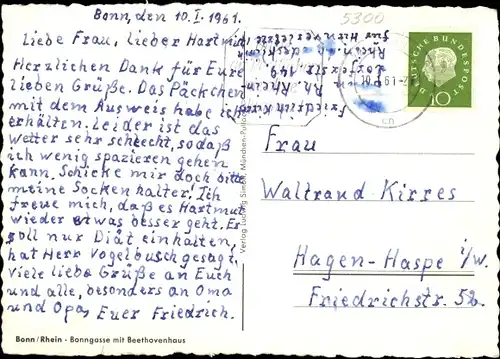 Bonn, den 10. I. 1961.
5300
Liebe Frau, lieber Hartmut
Herzlichen Dank für Eure
lieben Grüße. Das Päckchen
mit dem Ausweis habe ich
erhalten. Leider ist das
Wetter sehr schlecht, sodaß
ich wenig spazieren gehen
kann. Schicke mir doch bitte
meine Socken halter! Ich
freue mich, daß es Hartmut
wieder etwas besser geht. Er
soll nur Diät einhalten,
hat Herr Vogelbusch gesagt.
Viele liebe Grüße an Euch
und alle, besonders an Oma
und Opa, Euer Friedrich.
Friedrich Kirres
Bonn/Rh.
149
Rhein.
für Hirnverletzte
DEUTSCHE BUNDESPOST
10
Frau
Waltraud Kirres
Hagen-Haspe i/W.
Friedrichstr. 52.
Verlag Ludwig Simon, München-Pullach
Bonn/Rhein - Bonngasse mit Beethovenhaus